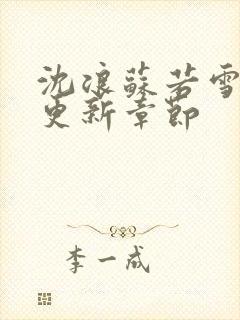 沈浪蘇若雪
更新章節
李一成